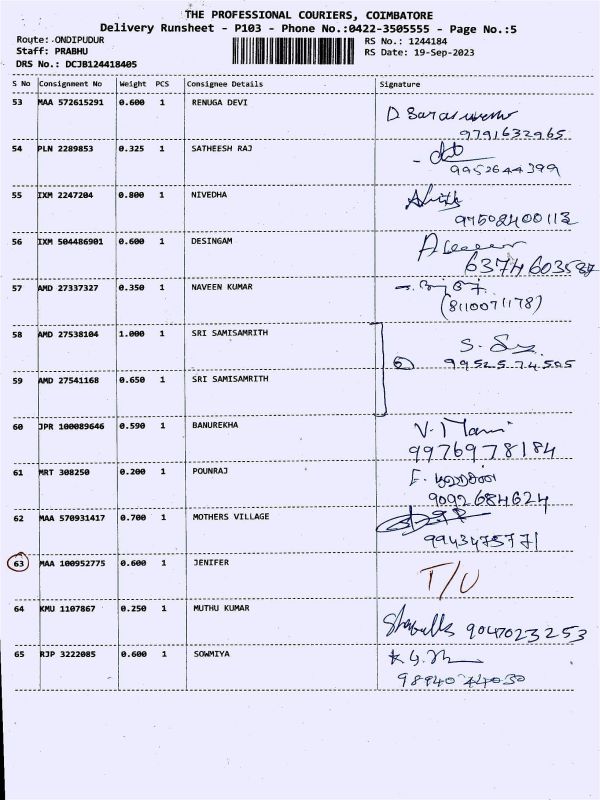 THE PROFESSIONAL COURIERS, COIMBATORE
Delivery Runsheet - P103 - Phone No.:0422-3505555 - Page No.:5
Route: ONDIPUDUR RS No.: 1244184
Staff: PRABHU RS Date: 19-Sep-2023
DRS No.: DCJB124418405
S No Consignment No Weight PCS Consignee Details Signature
53 MAA 572615291 0.600 1 RENUGA DEVI
9791632965
54 PLN 2289853 0.325 1 SATHEESH RAJ
9952644399
55 IXM 2247204 0.800 1 NIVEDHA
97502400113
56 IXM 504486901 0.600 1 DESINGAM
6374603587
57 AMD 27337327 0.350 1 NAVEEN KUMAR
(8110071178)
58 AMD 27538104 1.000 1 SRI SAMISAMRITH
9952574505
59 AMD 27541168 0.650 1 SRI SAMISAMRITH
60 JPR 100089646 0.590 1 BANUREKHA V. Mani
9976978184
61 MRT 308250 0.200 1 POUNRAJ
9092684624
62 MAA 570931417 0.700 1 MOTHERS VILLAGE
9943475771
63 MAA 100952775 0.600 1 JENIFER T/U
64 KMU 1107867 0.250 1 MUTHU KUMAR 9047023253
65 RJP 3222085 0.600 1 SOWMIYA
9894024030